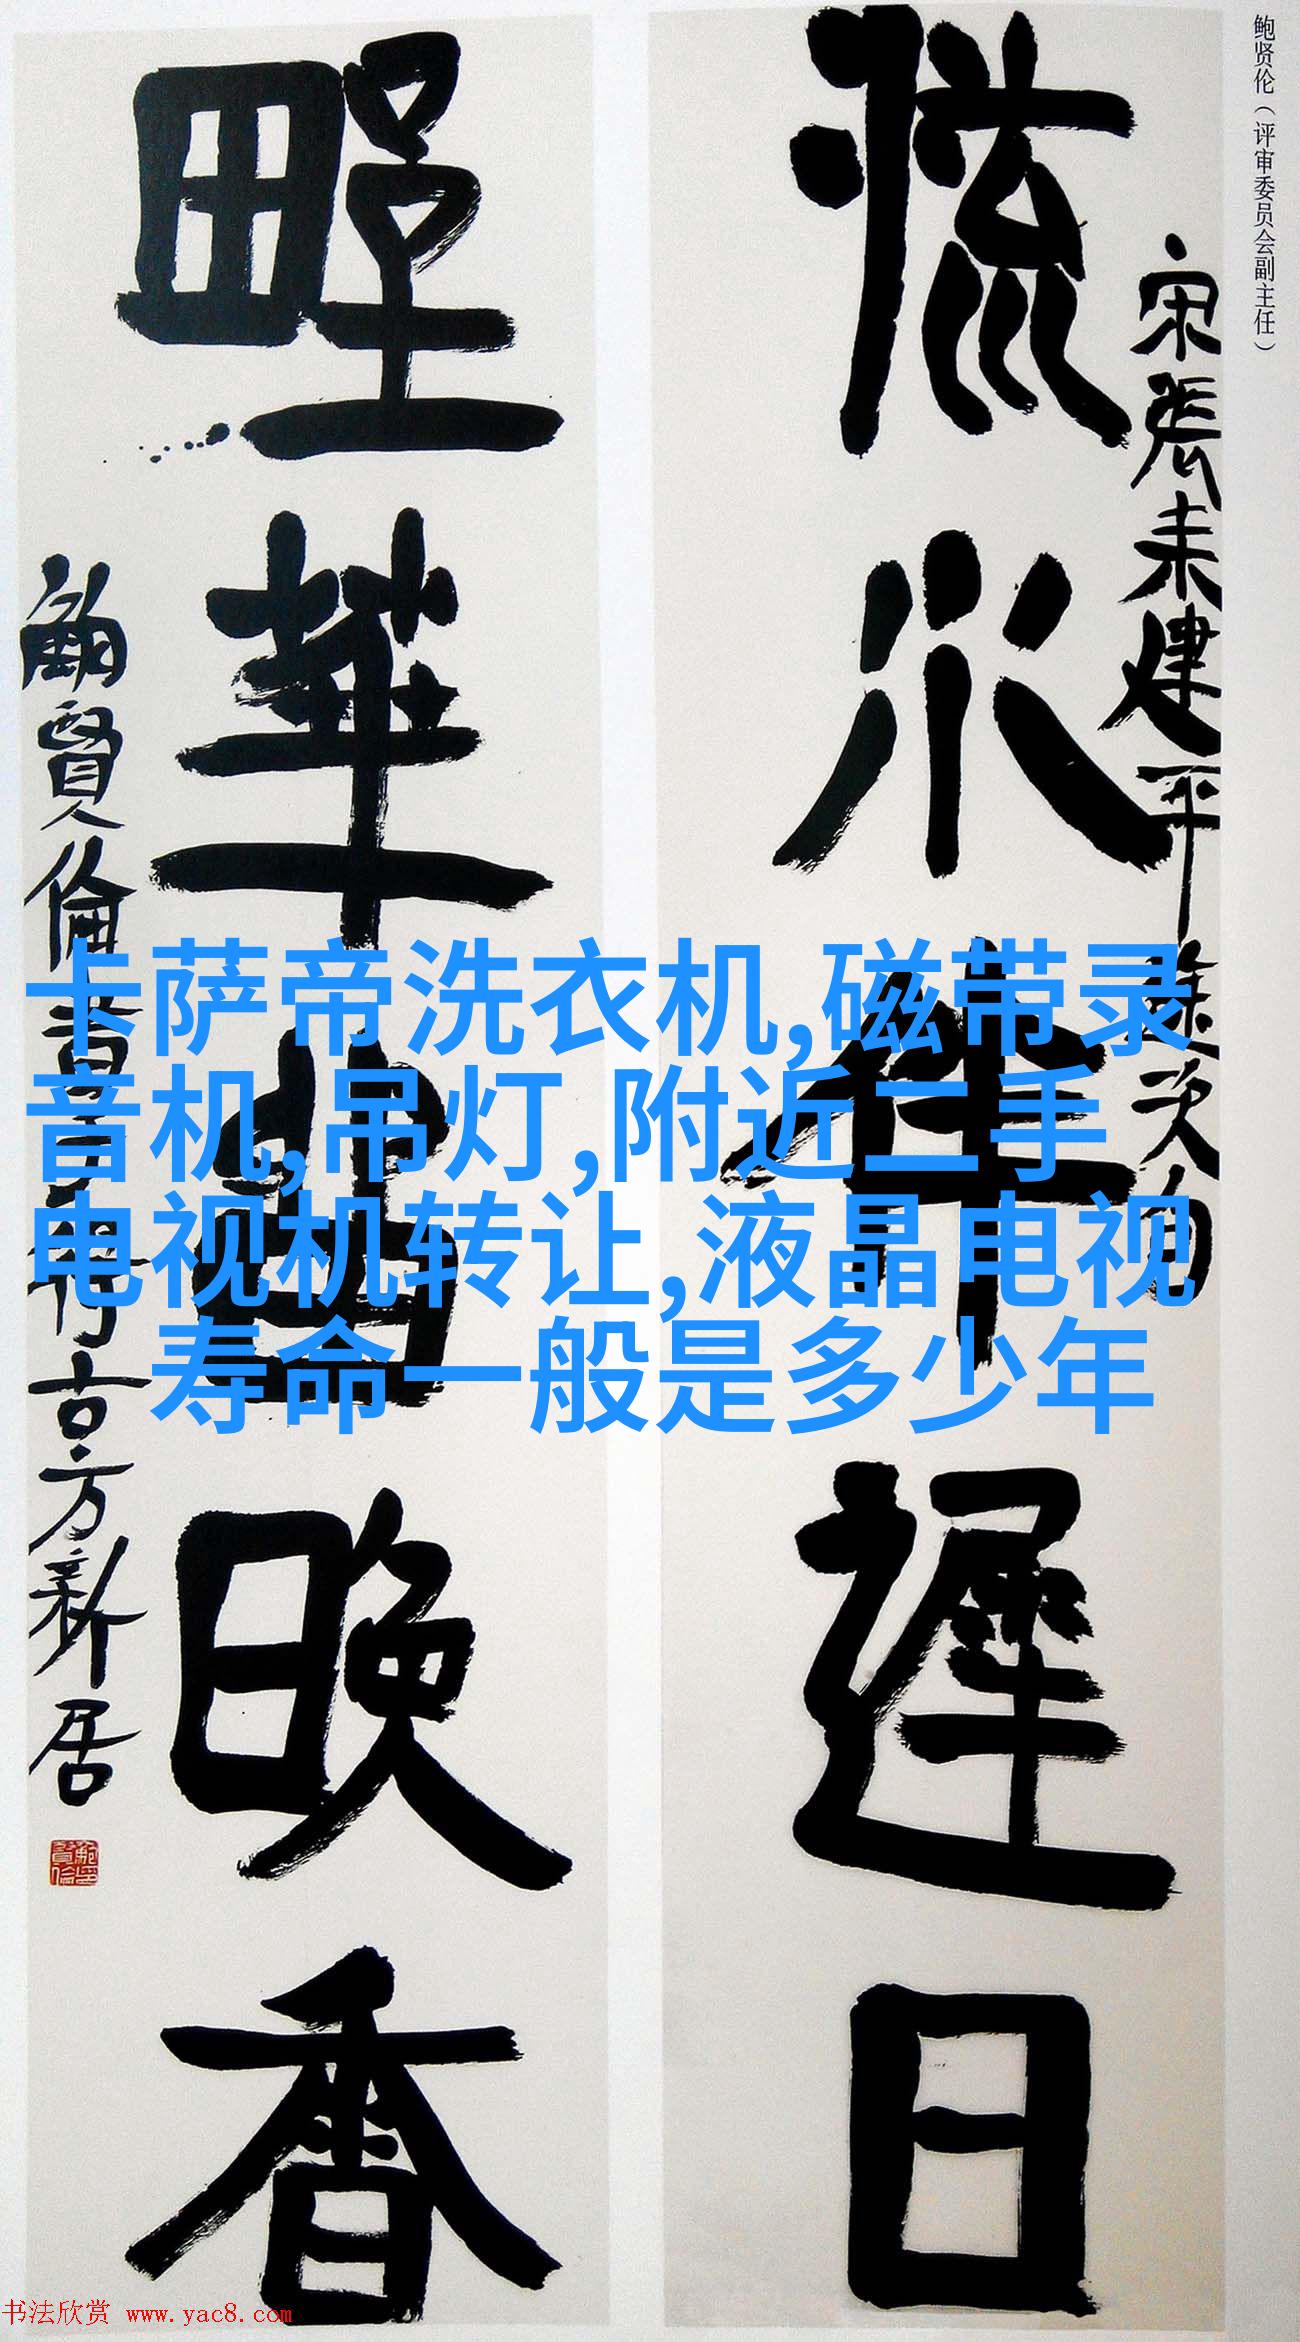 鲍贤伦（评审委员会副主任）
宋張耒建平途次句
流水伴遲日
野華
晚香
鮑賢倫書
古方新居
卡萨帝洗衣机,磁带录
音机,吊灯,附近二手
电视机转让,液晶电视
寿命一般是多少年
书法欣赏 www.yac8.com